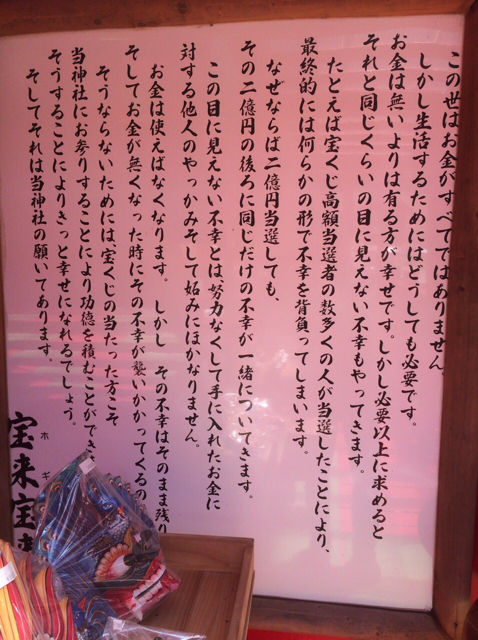 この世はお金がすべてではありません。
しかし生活するためにはどうしても必要です。
お金は無いよりは有る方が幸せです。しかし必要以上に求めると
それと同じくらいの目に見えない不幸もやってきます。
たとえば宝くじ高額当選者の数多くの人が当選したことにより、
最終的には何らかの形で不幸を背負ってしまいます。
なぜならば二億円当選しても、
その二億円の後ろに同じだけの不幸が一緒についてきます。
この目に見えない不幸とは努力なくして手に入れたお金に
対する他人のやっかみそして妬みにほかなりません。
お金は使えばなくなります。しかし その不幸はそのまま残り
そしてお金が無くなった時にその不幸が襲いかかってくるの
そうならないためには、宝くじの当たった方こそ
当神社にお参りすることにより功徳を積むことができ
そうすることによりきっと幸せになれるでしょう。
そしてそれは当神社の願いであります。
宝来宝来
ホギ